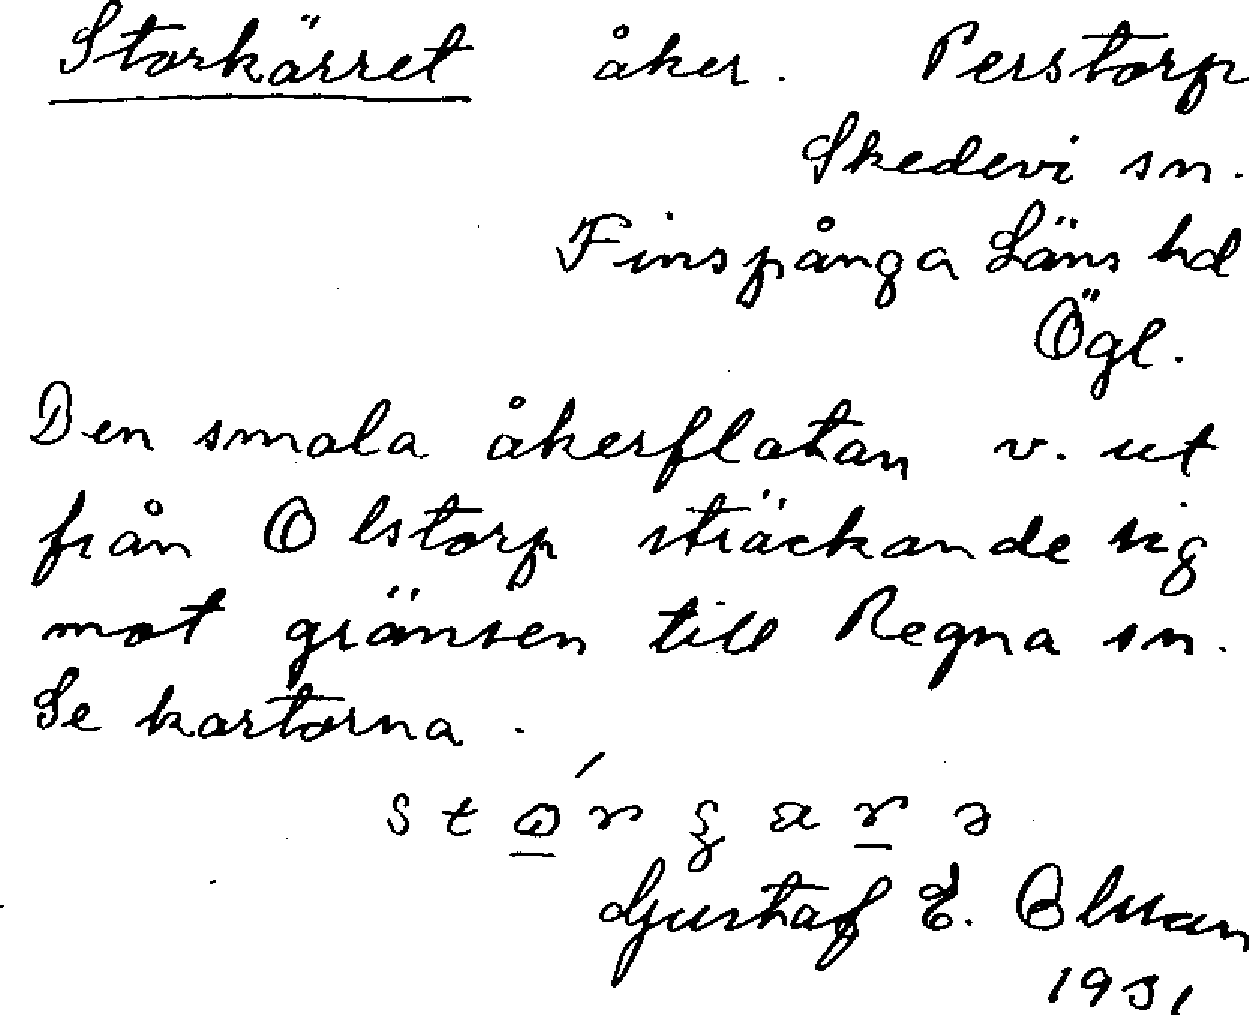 Storkärret åker. Perstorp
Skedevi sn.
Finspånga Läns hd
Ögl.
Den smala åkerflatan v. ut
från Olstorp sträckande sig
mot gränsen till Regna sn.
Se kartorna.
Gustaf E.
1931